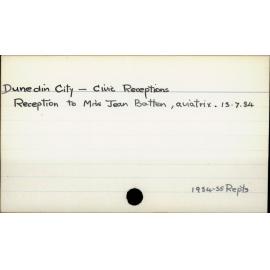 Dunedin City — Civic Receptions
Reception to Miss Jean Batten, aviatrix. 13.7.34
1934-35 Repts